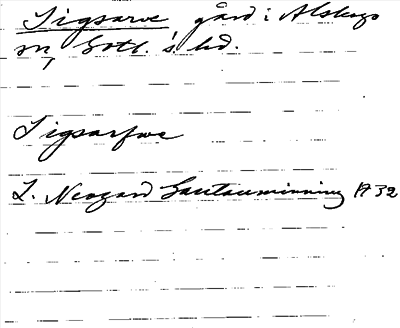 Sigsarve gård i Alskogs
sn, Gotl.s hd.
Sigsarfwe
L. Neogard Gautauminning 1732